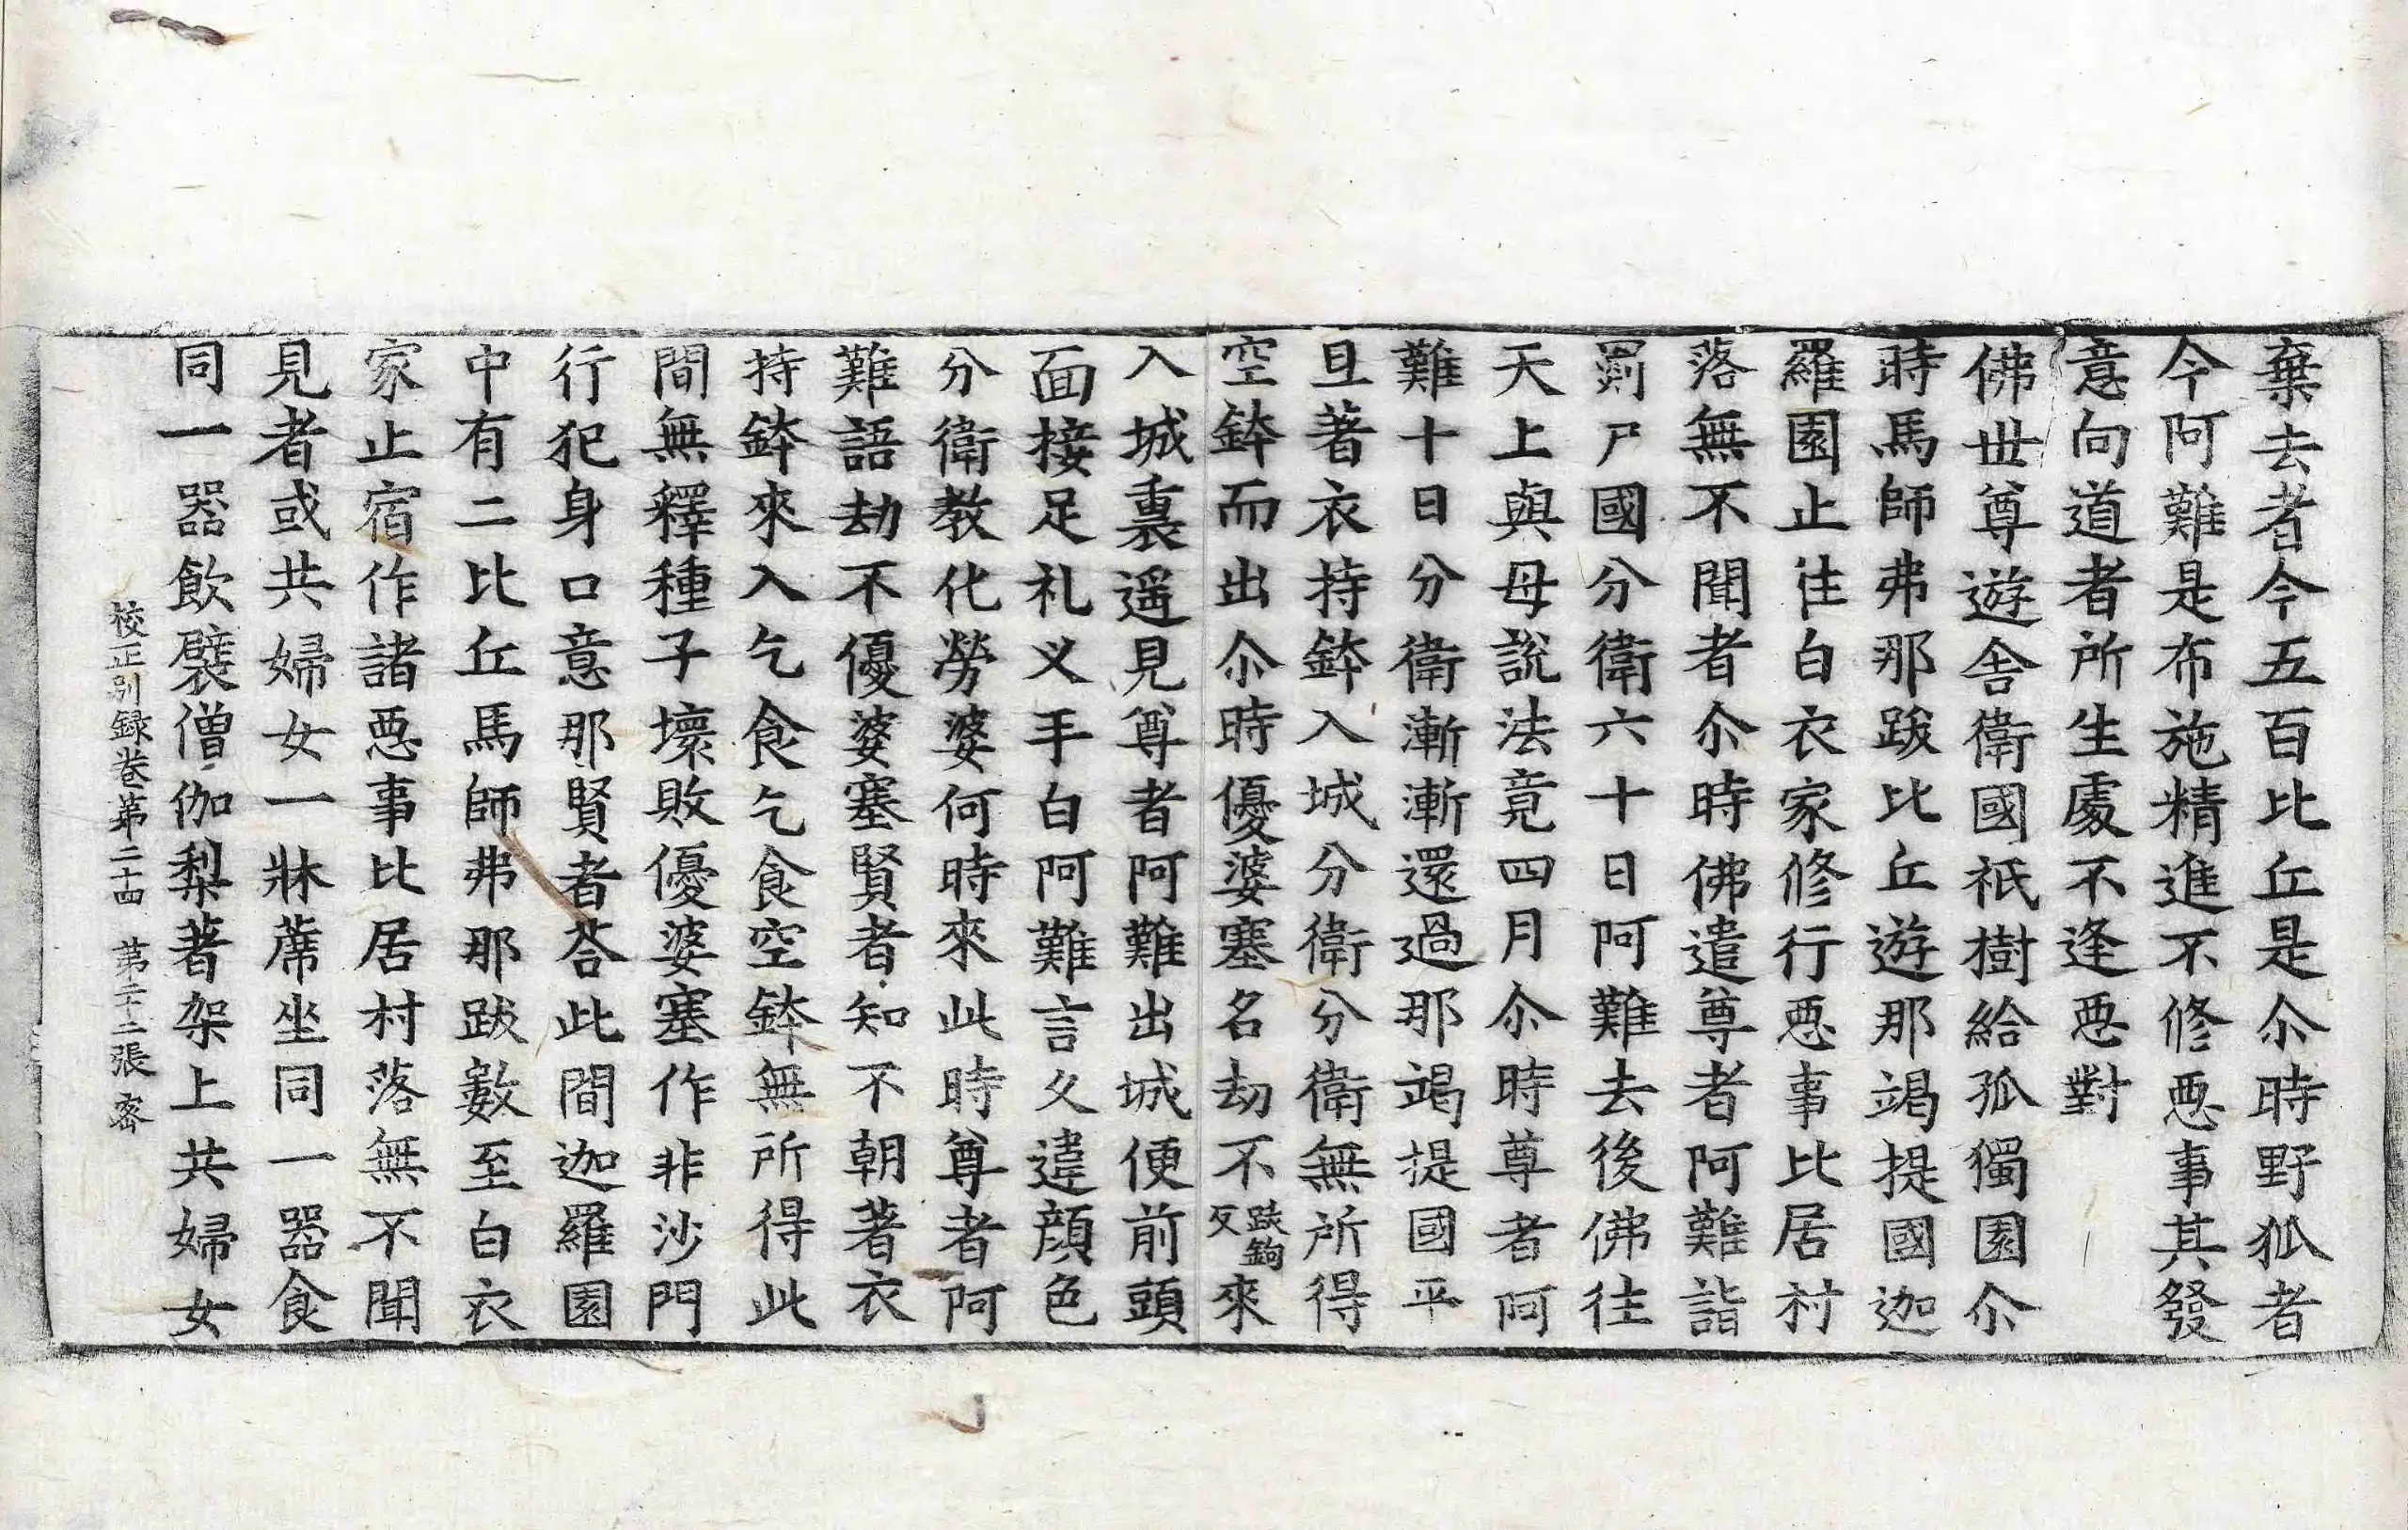 棄去者今五百比丘是尒時野狐者
今阿難是布施精進不修惡事其發
意向道者所生處不逢惡對
佛世尊遊舍衛國祇樹給孤獨園尒
時馬師弗那跋比丘遊那竭提國迦
羅園止往白衣家修行惡事比居村
落無不聞者尒時佛遣尊者阿難詣
罽尸國分衛六十日阿難去後佛往
天上與母說法竟四月尒時尊者阿
難十日分衛漸漸還過那竭提國平
旦著衣持鉢入城分衛分衛無所得
空鉢而出尒時優婆塞名劫不跌鉤反來
入城裏遥見尊者阿難出城便前頭
面接足礼叉手白阿難言久違顔色
分衛教化勞婆何時來此時尊者阿
難語劫不優婆塞賢者知不朝著衣
持鉢來入乞食乞食空鉢無所得此
間無釋種子壞敗優婆塞作非沙門
行犯身口意那賢者荅此間迦羅園
中有二比丘馬師弗那跋數至白衣
家止宿作諸惡事比居村落無不聞
見者或共婦女一牀蓆坐同一器食
同一器飲襞僧伽梨著架上共婦女
校正別録卷第二十四　第二十二張　密